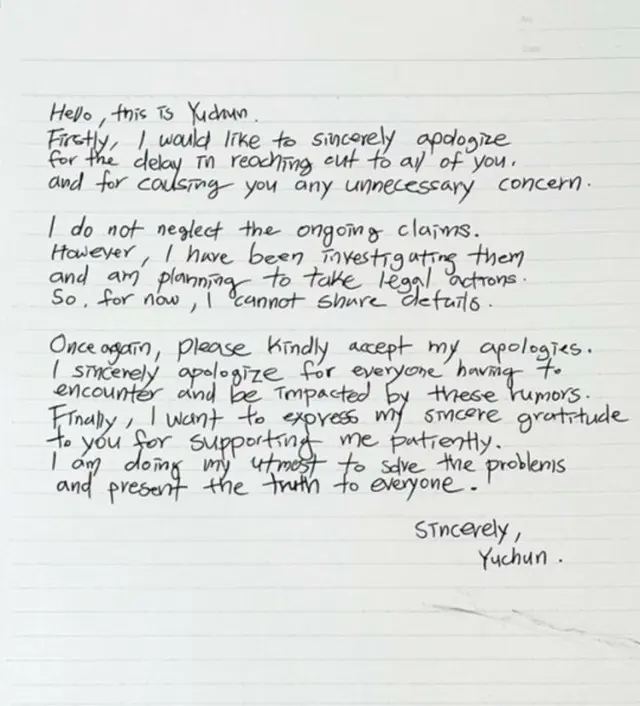 Hello, this is Yuchun.
Firstly, I would like to sincerely apologize
for the delay in reaching out to all of you.
and for causing you any unnecessary concern.
I do not neglect the ongoing claims.
However, I have been investigating them
and am planning to take legal actions.
So. for now, I cannot share details.
Once again, please kindly accept my apologies.
I sincerely apologize for everyone having to
encounter and be impacted by these rumors.
Finally, I want to express my sincere gratitude
to you for supporting me patiently.
I am doing my utmost to solve the problems
and present the truth to everyone.
Sincerely,
Yuchun.